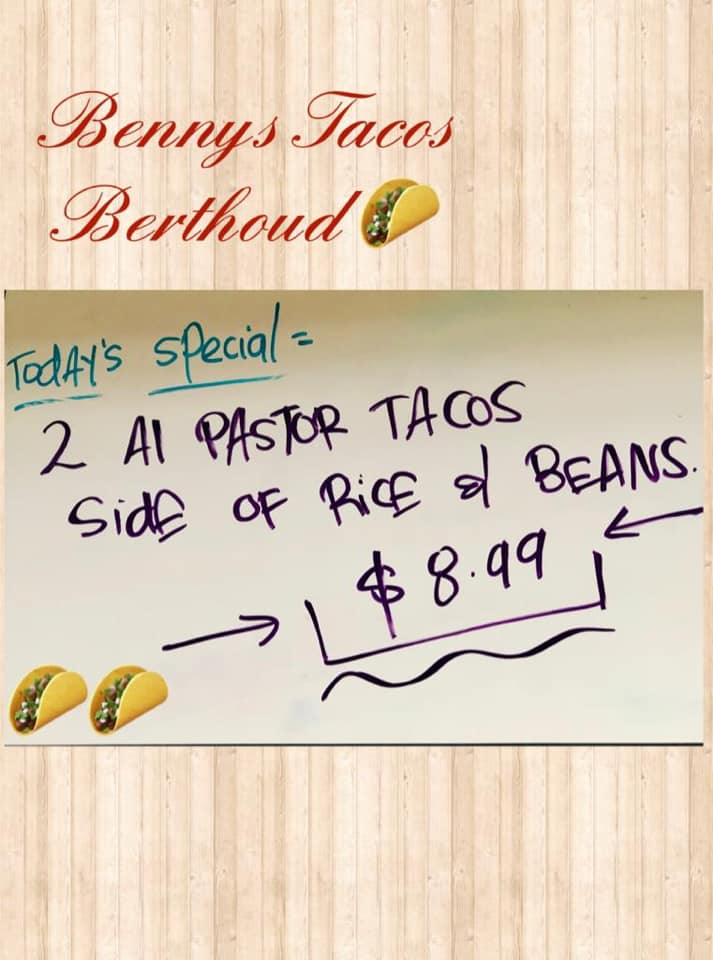 Bennys Tacos
Berthoud
TodAY's special =
2 Al PASTOR TACOS
Side OF RiCE & BEANS.
$8.99